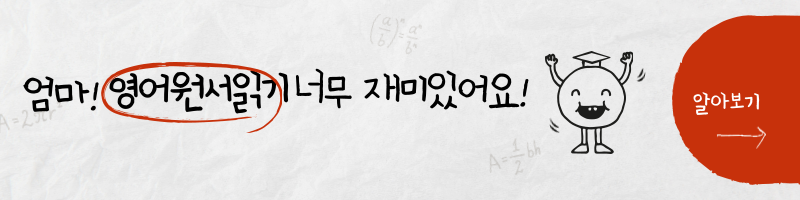 엄마! 영어원서읽기 너무 재미있어요!
알아보기
(a/b)ⁿ = aⁿ/bⁿ
A = 1/2 bh